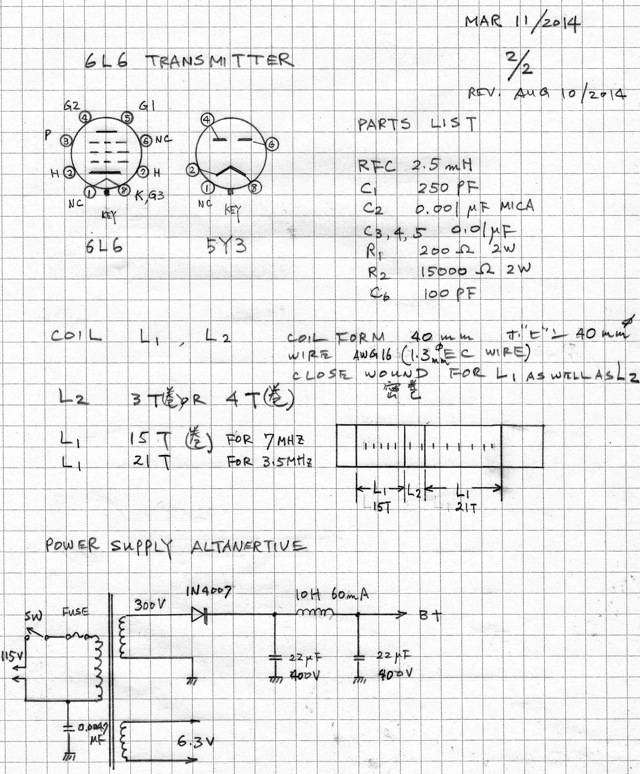 MAR 11/2014
6L6 TRANSMITTER
2/2
REV. AUG 10/2014
G2 G1
④ ⑤
P ③ ⑥ NC
H ② ⑦ H
① ⑧
NC KEY K,G3
6L6
④ ⑥
② ⑧
①
NC KEY
5Y3
PARTS LIST
RFC 2.5 mH
C1 250 PF
C2 0.001 µF MICA
C3,4,5 0.01µF
R1 200 Ω 2W
R2 15000 Ω 2W
C6 100 PF
COIL L1, L2
COIL FORM 40 mm ボビン 40 mmφ
WIRE AWG16 (1.3mmφ EC WIRE)
CLOSE WOUND FOR L1 AS WELL AS L2
密巻
L2 3 T(巻) OR 4 T(巻)
L1 15 T (巻) FOR 7MHz
L1 21 T FOR 3.5MHz
L1 L2 L1
15T 21T
POWER SUPPLY ALTANERTIVE
SW FUSE
115V
0.0047
µF
300V
1N4007
10H 60mA
B+
22µF
400V
22µF
400V
6.3V